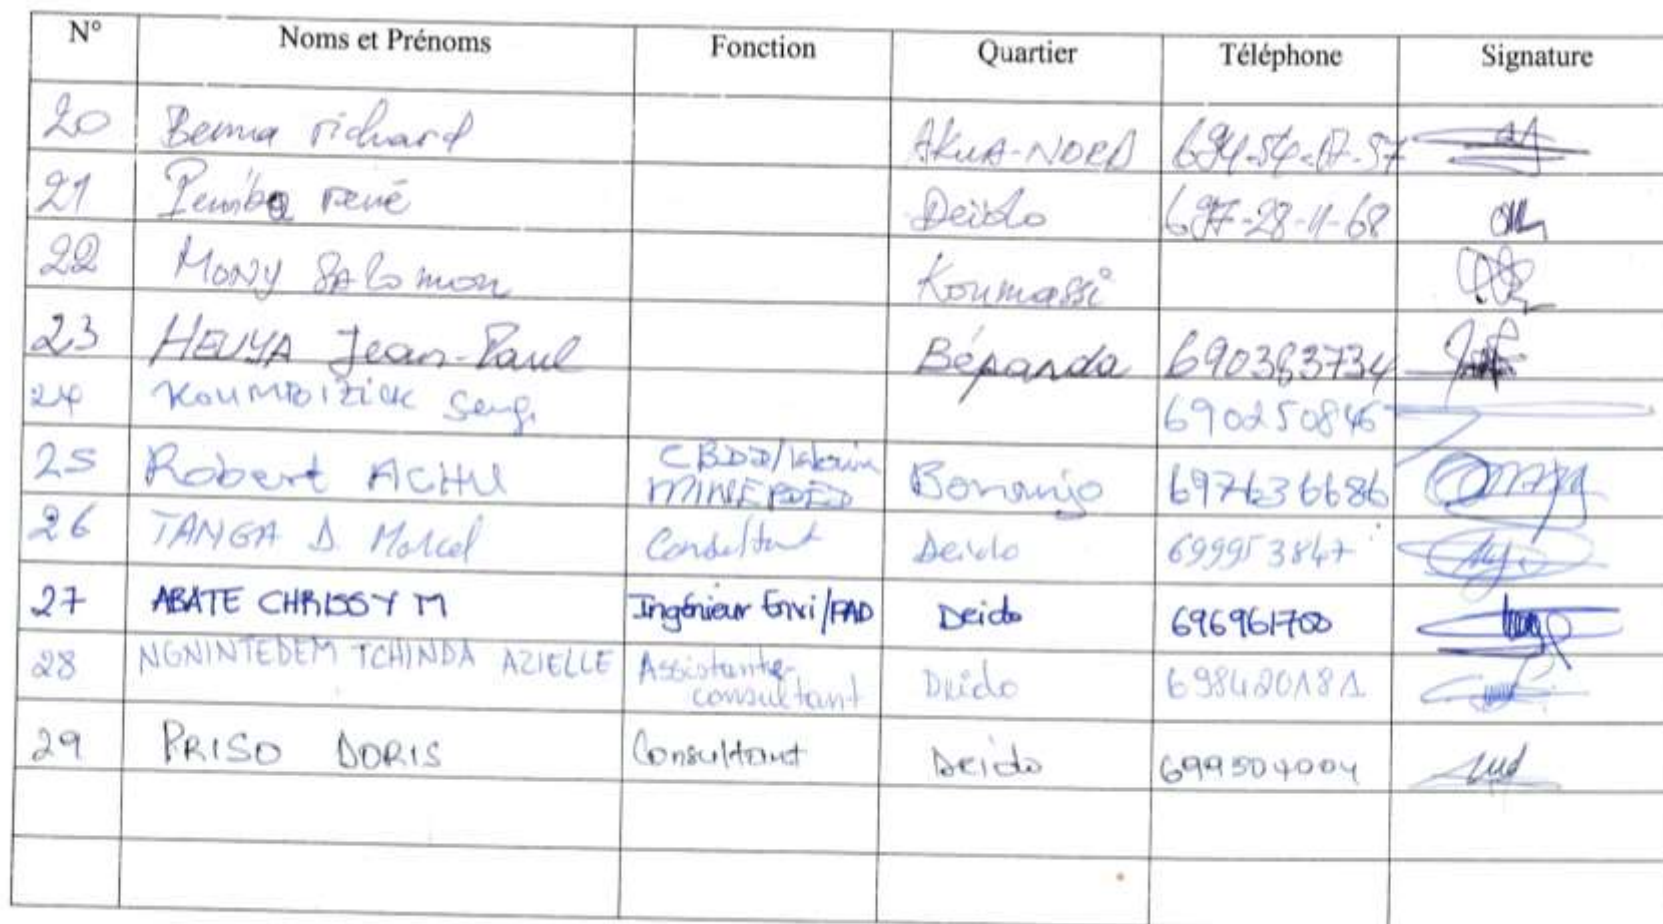 N° Noms et Prénoms Fonction Quartier Téléphone Signature
20 Bema richard AKWA-NORD 694-54-17-57
21 Pemba rené Deïdo 697-28-11-68
22 MONY SALomon Koumassi
23 HEUYA Jean-Paul Bépanda 690383734
24 690250846
25 Robert ACHU CBDD/ Bonanjo 697636686
MINEPDED
26 TANGA D. Marcel Consultant Deido 699953847
27 ABATE CHRISSY M Ingénieur Envi/PAD Deido 696961700
28 NGNINTEDEM TCHINDA AZIELLE Assistante- Deido 698420181
consultant
29 PRISO DORIS Consultant Deido 699504004